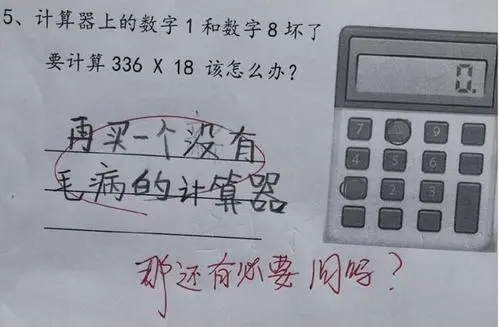 5、计算器上的数字1和数字8坏了
要计算336 X 18 该怎么办?
再买一个没有
毛病的计算器
那还有必要问吗?
0.
7 8 9
4 5 6
2 3